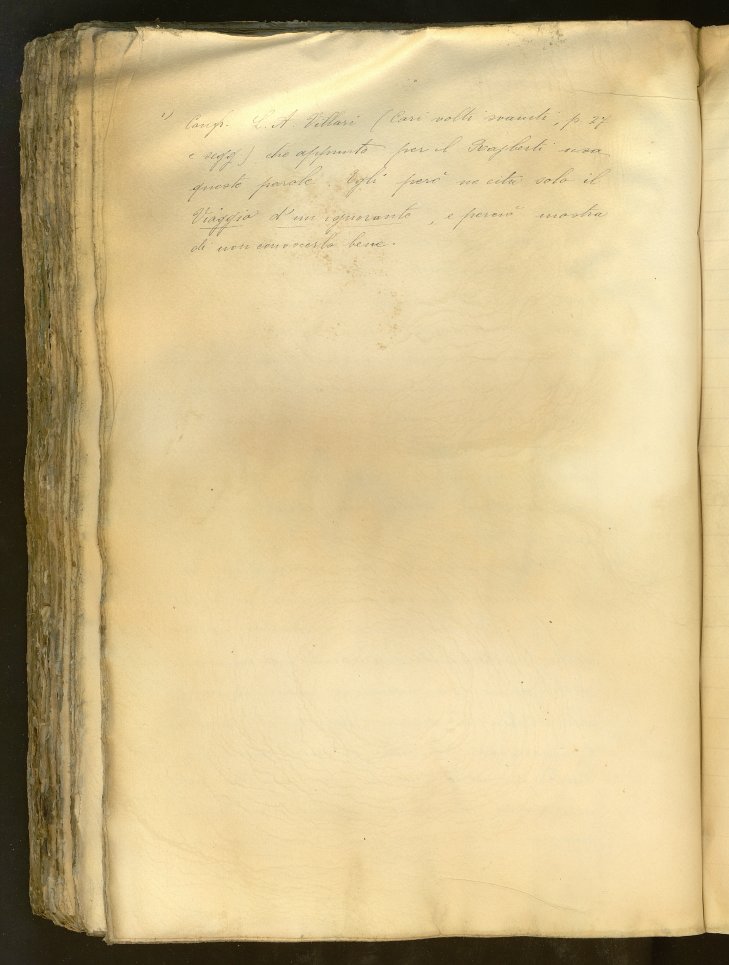 1) Confr. L. A. Villari (Cari volti svaniti, p. 27
e segg.) che appunto per il Raiberti usa
queste parole. Egli però ne cita solo il
Viaggio d'un ignorante, e perciò mostra
di non conoscerlo bene.